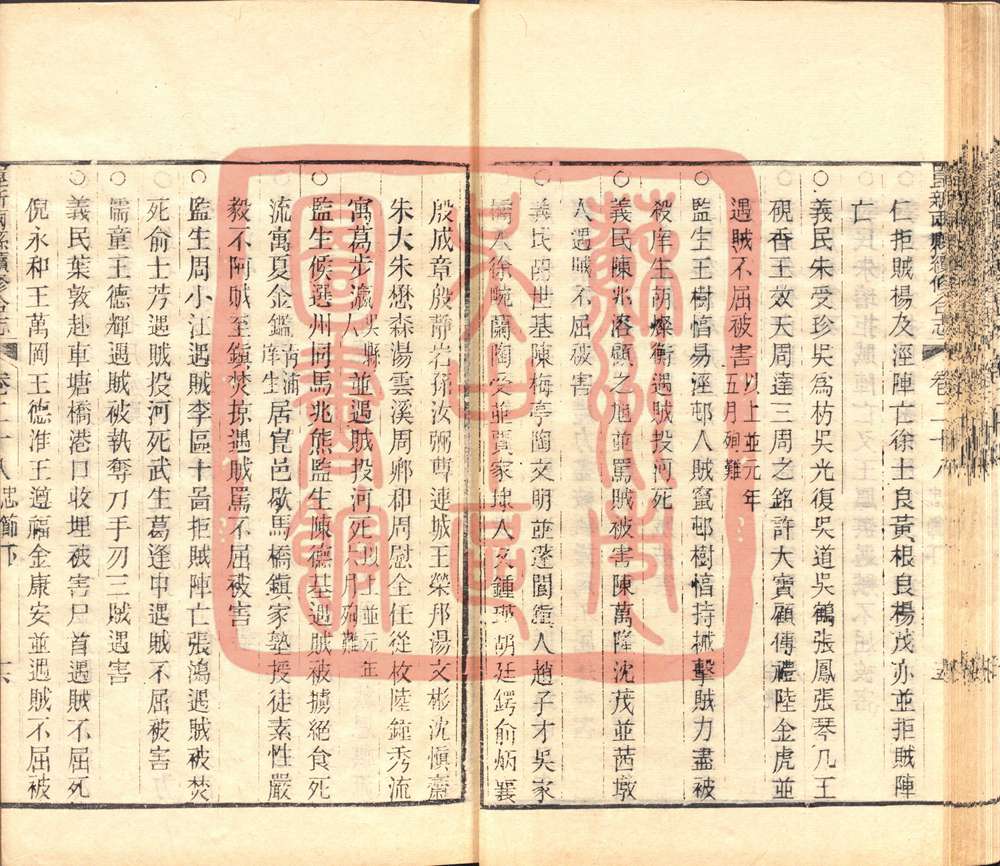 仁拒賊楊及涇陣亡徐士良黃根良楊茂亦並拒賊陣
亡
○義民朱受珍吳為枋吳光復吳道吳鶴張鳳張琴几王
硯香王效天周達三周之銘許大寶顧傳禮陸金虎並
遇賊不屈被害以上並元年五月殉難
○監生王樹惜易涇邨人賊竄邨樹惜持械擊賊力盡被
殺庠生胡燦衡遇賊投河死
○義民陳兆溶顧之旭並罵賊被害陳萬隆沈茂並茜墩
人遇賊不屈被害
○義民胡世基陳梅亭陶文明並蓬閬鎮人趙子才吳家
橋人徐畹蘭陶受並張家埭人又鍾琢胡廷鍔俞炳襄
殷成章殷靜岩孫汝弼尃連城王榮邦湯文彬沈愼齋
朱大朱懋森湯雲溪周鄉柳周慰全任從枚陸鐘秀流
寓葛步瀛吳縣人並遇賊投河死以上並元年月殉難
○監生候選州同馬兆熊監生陳德基遇賊被擄絕食死
流寓夏金鑑青浦庠生居崑邑歇馬橋鎮家塾授徒素性嚴
毅不阿賊至鎮焚掠遇賊罵不屈被害
○監生周小江遇賊李區十啚拒賊陣亡張鴻遇賊被焚
死俞士芳遇賊投河死武生葛逢申遇賊不屈被害
○儒童王德輝遇賊被執奪刀手刃三賊遇害
○義民葉敦赴車塘橋港口收埋被害尸首遇賊不屈死
倪永和王萬岡王德淮王遵福金康安並遇賊不屈被
卷二十八 忠節下